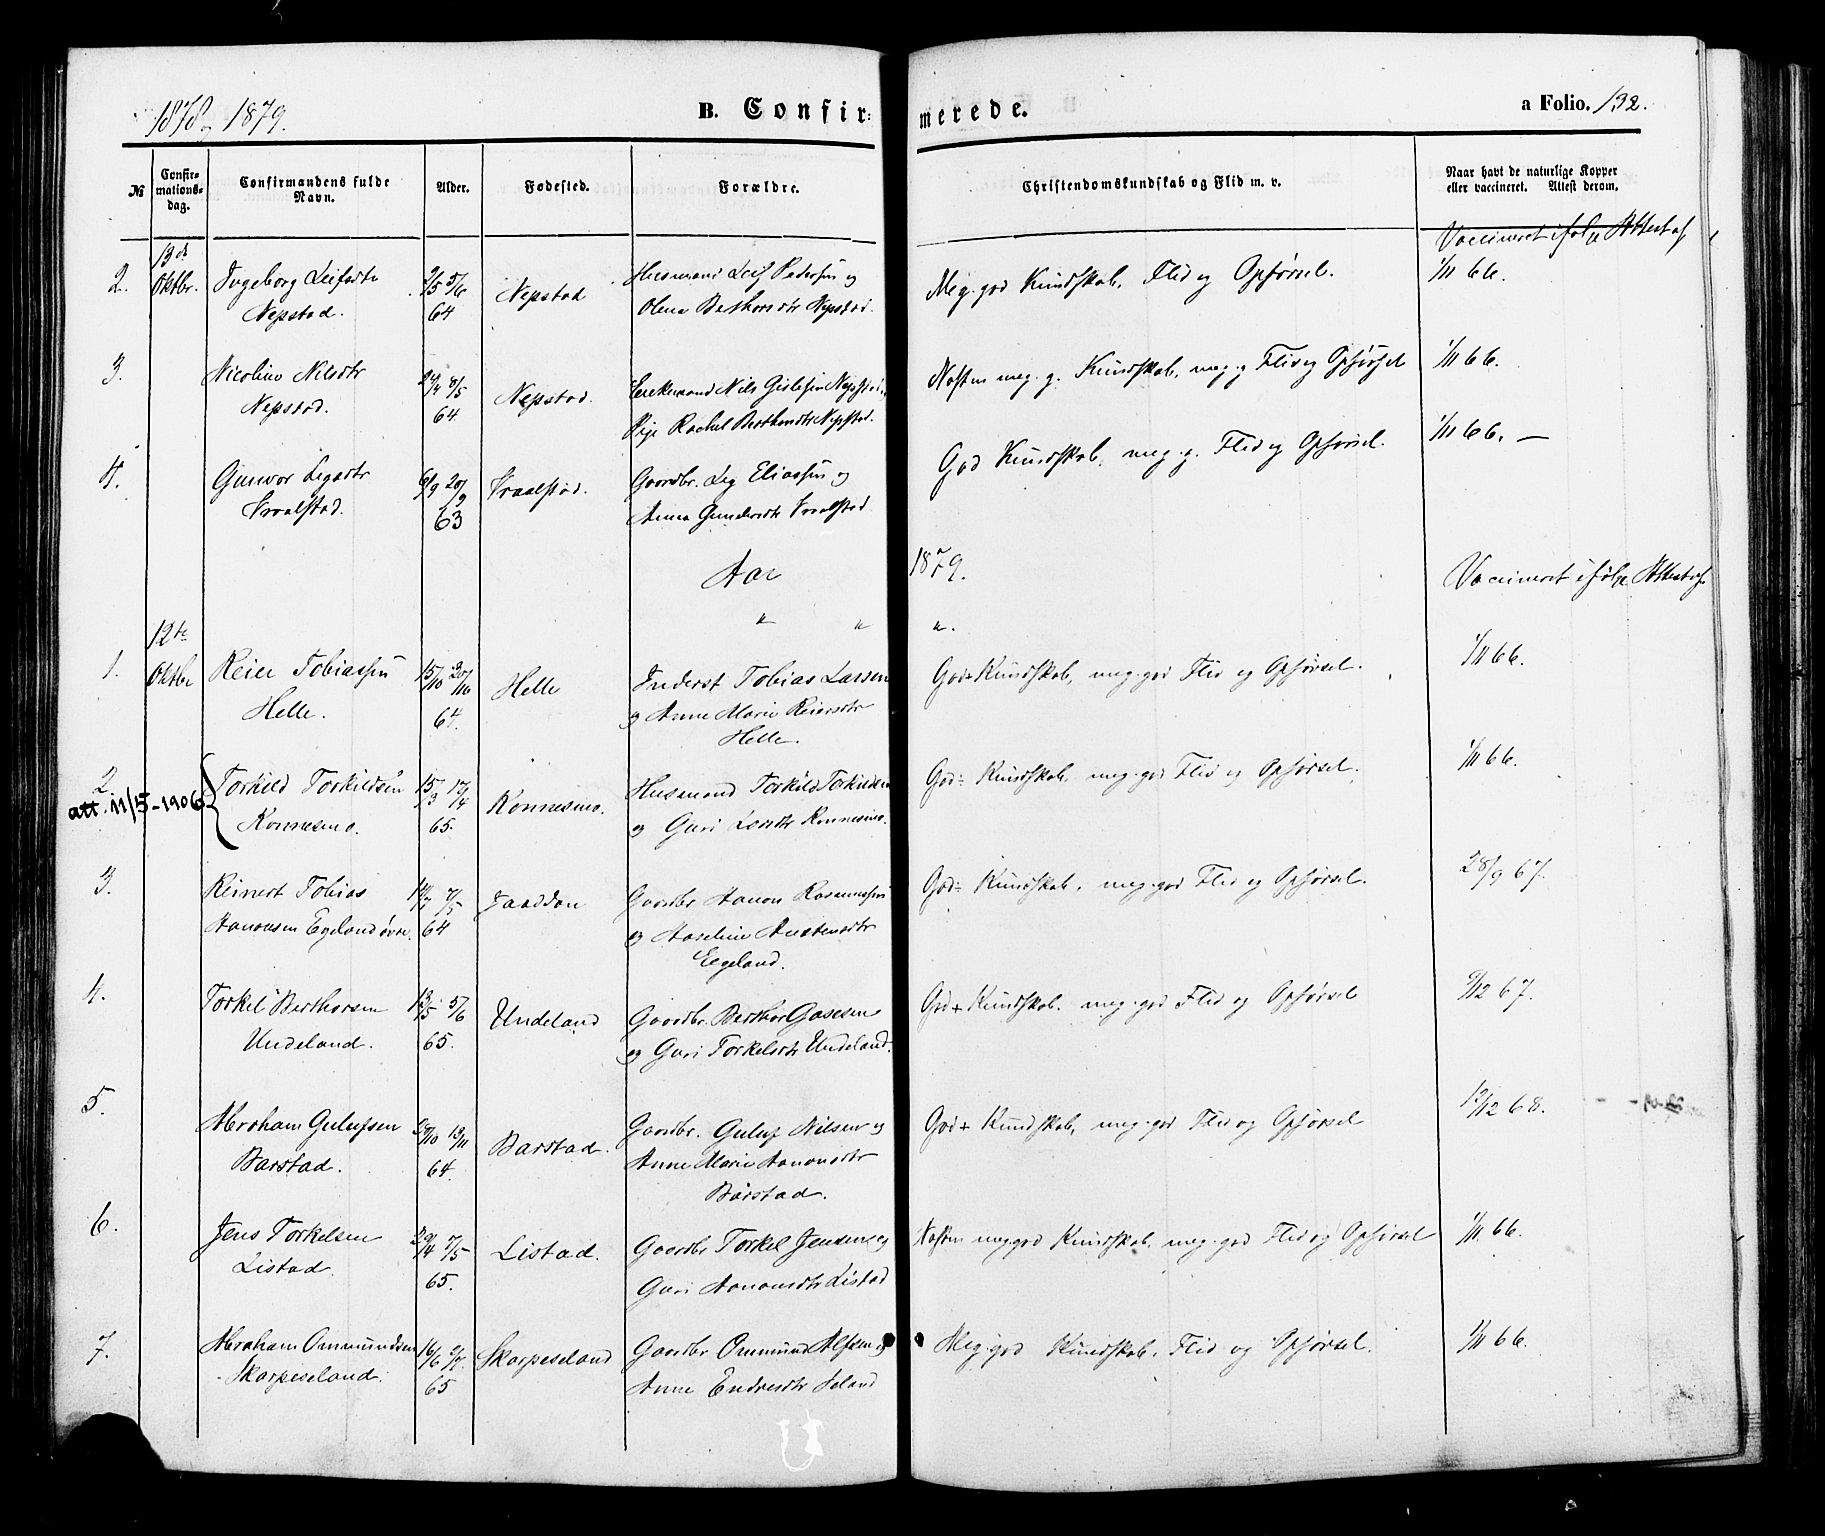 1878-1879.
B. Confir=
merede.
a Folio. 132.
No
Confir-
mations-
dag.
Confirmandens fulde
Navn.
Alder.
Fødested.
Forældre.
Christendomskundskab og Flid m. v.
Naar havt de naturlige Kopper
eller vaccineret. Attest derom.
Vaccineret ifølge Attest af
13de
2. Oktbr. Ingeborg Leifsdtr 2/5 5/6 Nepstad Husmand Leif Pedersen og Meg. god Kundskab, Flid og Opførsel. 1/11 66.
Nepstad. 64 Olena Berthorsdtr Nepstad.
3. Nicoline Nilsdtr 8/5 Nepstad. Enkemand Nils Gislesen Nepstad Næsten meg. g. Kundskab, meg. g Flid og Opførsel 1/11 66.
Nepstad. 64. Pige Rachel Berthorsdtr Nepstad.
4. Gunvor Legsdtr 6/9 20/9 Vraalstad. Gaardbr. Leg Eliassen og God Kundskab, meg. g. Flid og Opførsel. 1/11 66. —
Vraalstad. 63 Anna Gundersdtr Vraalstad.
Aar 1879.
Vaccineret ifølge Attest af
" " ".
12te
1. Oktbr Reier Tobiassen 15/10 20/10 Helle Inderst Tobias Lassen God+ Kundskab, meg. god Flid og Opførsel. 1/11 66.
Helle. 64. og Anne Marie Reiersdtr
Helle.
2 Torkild Torkildsen 15/3 17/4 Konnesmo. Husmand Torkild Torkildsen God÷ Kundskab, meg. god Flid og Opførsel. 1/11 66.
att. 11/5-1906 Konnesmo. 65. og Guri Larsdtr Konnesmo.
3. Reinert Tobias 7/5 Gaardbr Aanon Rasmussen God÷ Kundskab, meg. god Flid og Opførsel. 28/9 67.
Aanonsen Egeland øvre. 64 og Aaseline
Egeland.
4. Torkel Berthorsen 13/5 5/6 Undeland Gaardbr. Berthor Gasesen God+ Kundskab. meg. god Flid og Opførsel 9/12 67.
Undeland. 65. og Guri Torkelsdtr Undeland.
5. Abraham Gulufsen 13/11 Barstad. Gaardbr. Guluf Nilsen og God+ Kundskab, meg. god Flid og Opførsel 12/12 68.
Barstad. 64. Anne Marie Aanonsdtr
Barstad.
6. Jens Torkelsen 7/5 Listad. Gaardbr Torkel Jensen og Næsten meg. god Kundskab, meg. god Flid og Opførsel 1/11 66.
Listad. 65. Guri Aanonsdtr Listad
7. Abraham Ommundsen 16/6 9/7. Skarpeseland Gaardbr Ommund Alfsen og Meg. god Kundskab, Flid og Opførsel. 1/11 66.
Skarpeseland. 65 Anne Endresdtr